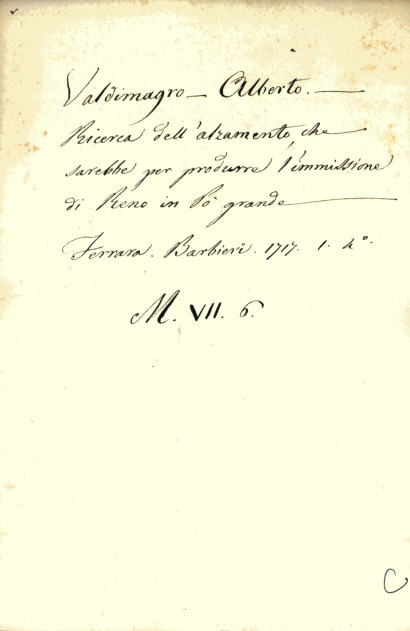 Valdimagro — Alberto. —
Ricerca dell'alzamento, che
sarebbe per produrre l'immissione
di Reno in Pò grande —
Ferrara. Barbieri. 1717. 1. 4°.
M. VII. 6.
C